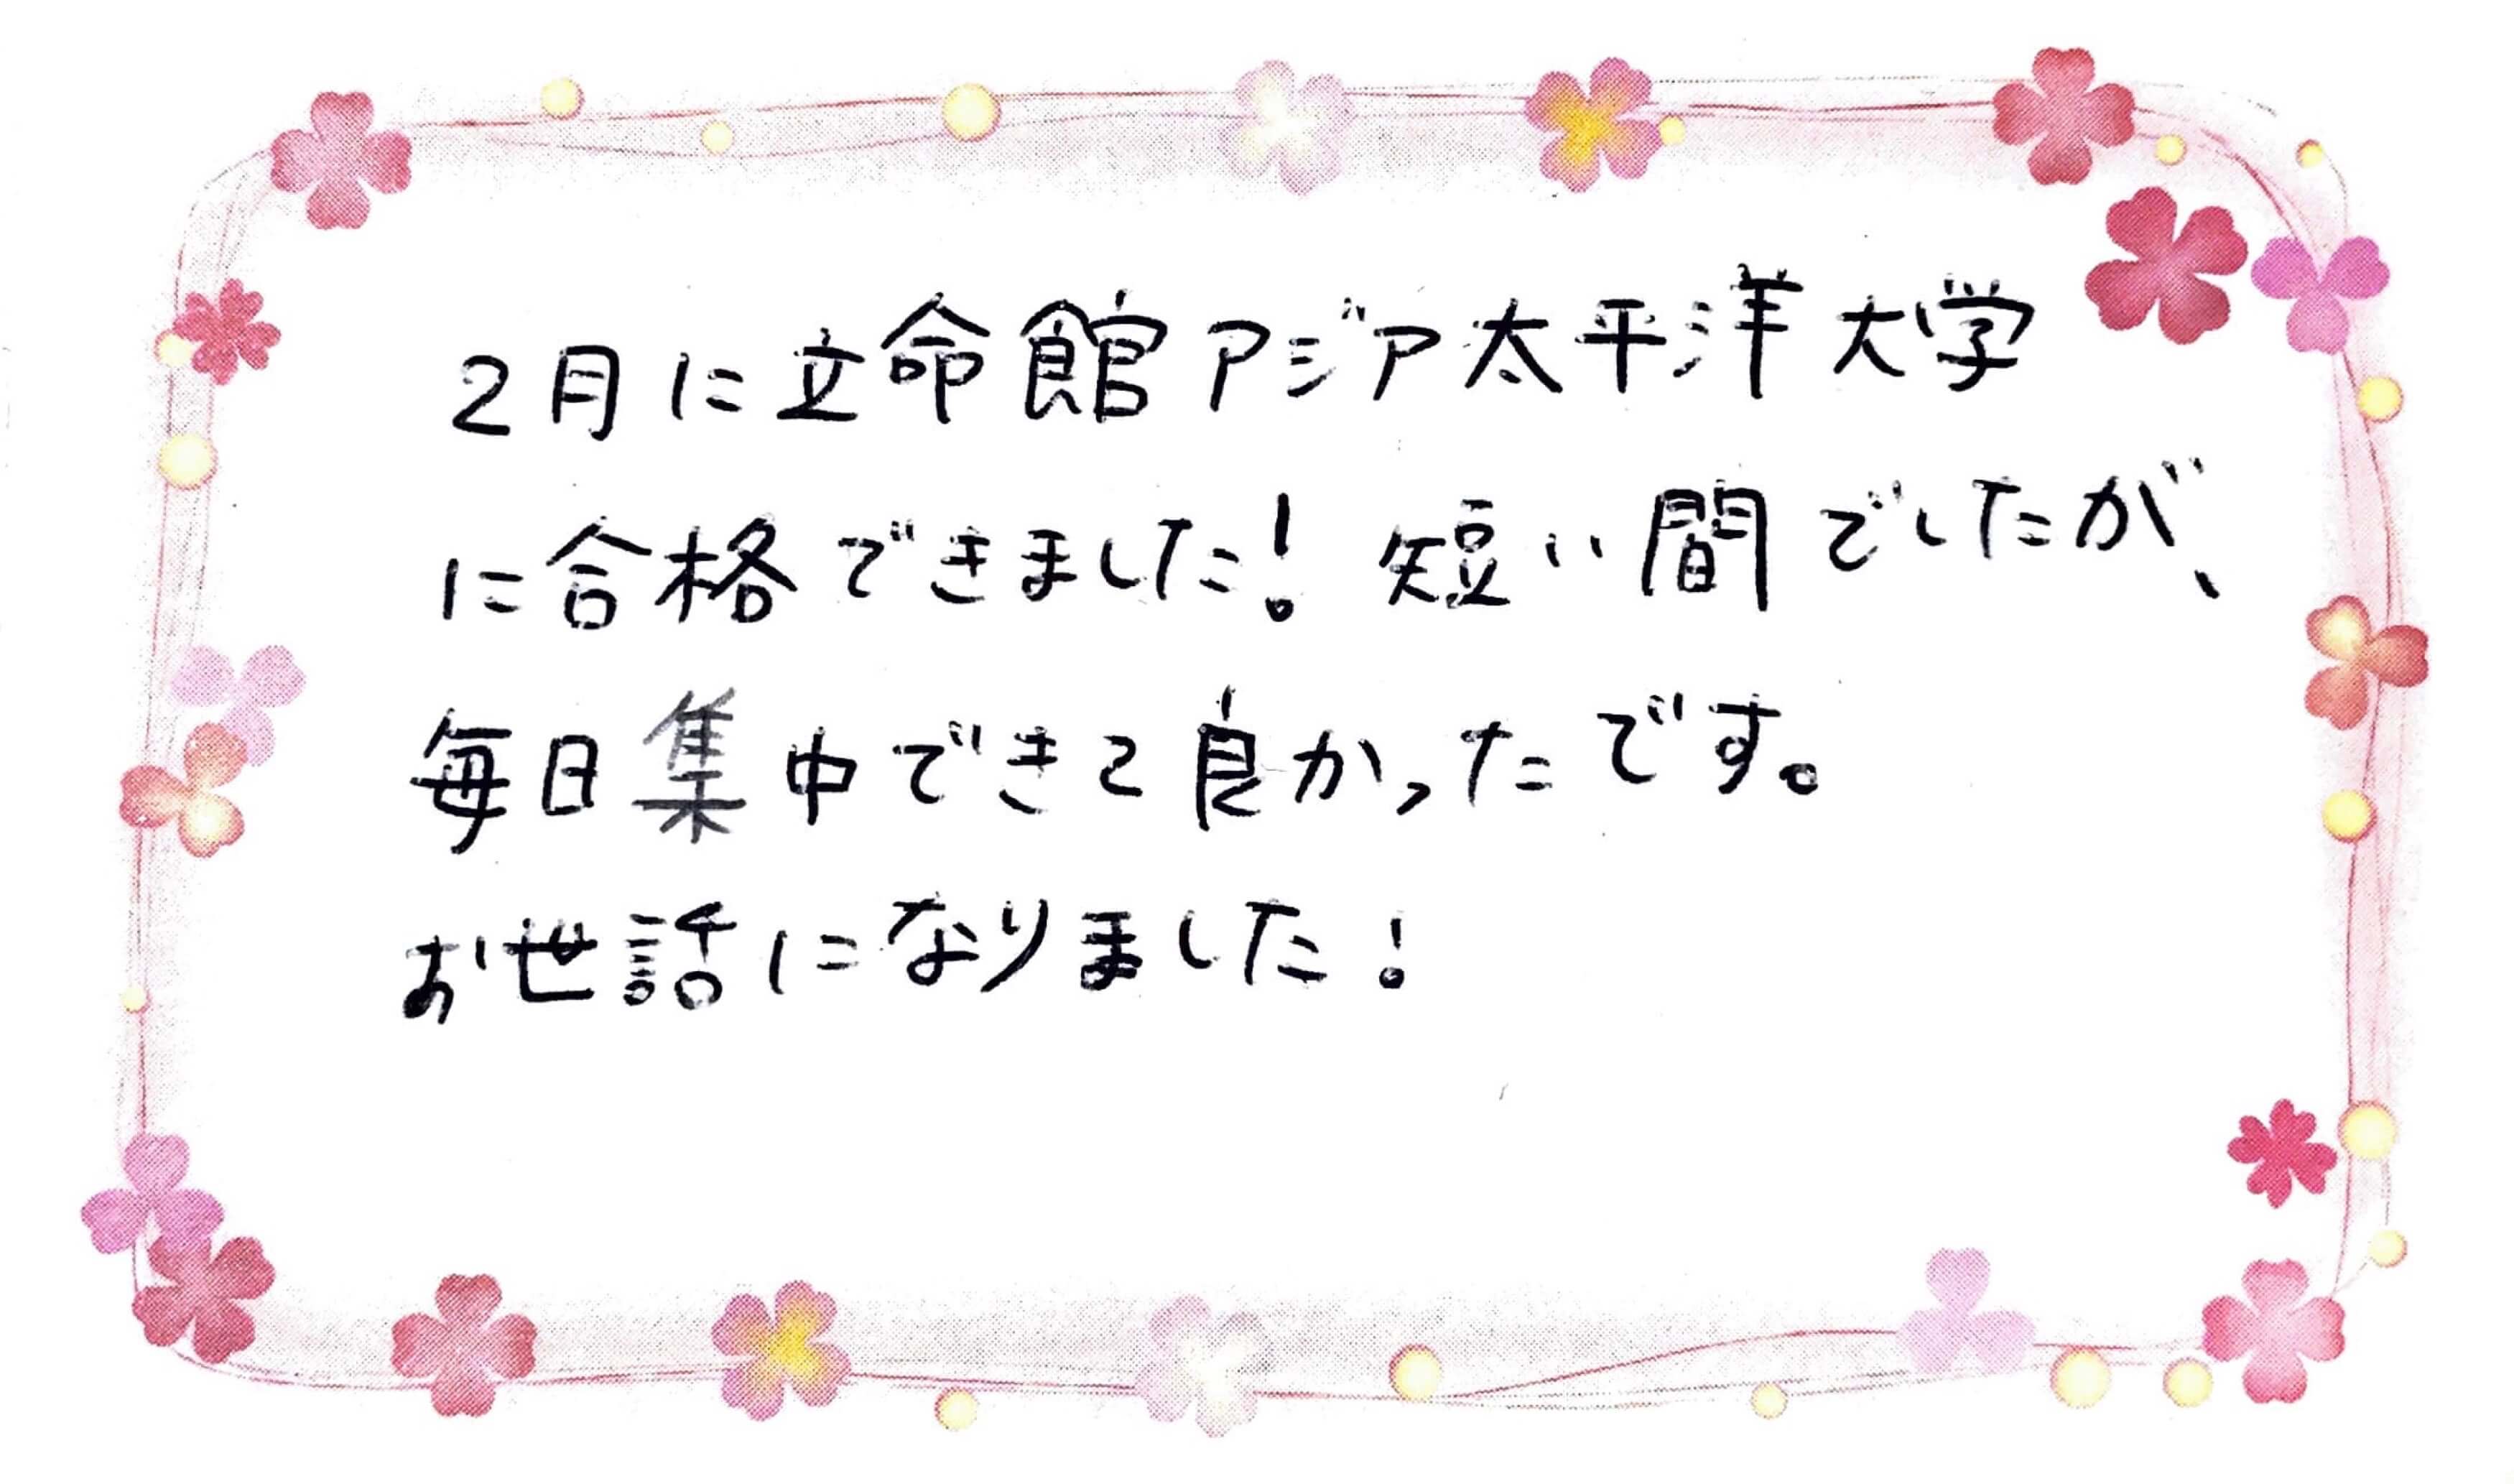 2月に立命館アジア太平洋大学
に合格できました! 短い間でしたが、
毎日集中できて良かったです。
お世話になりました!